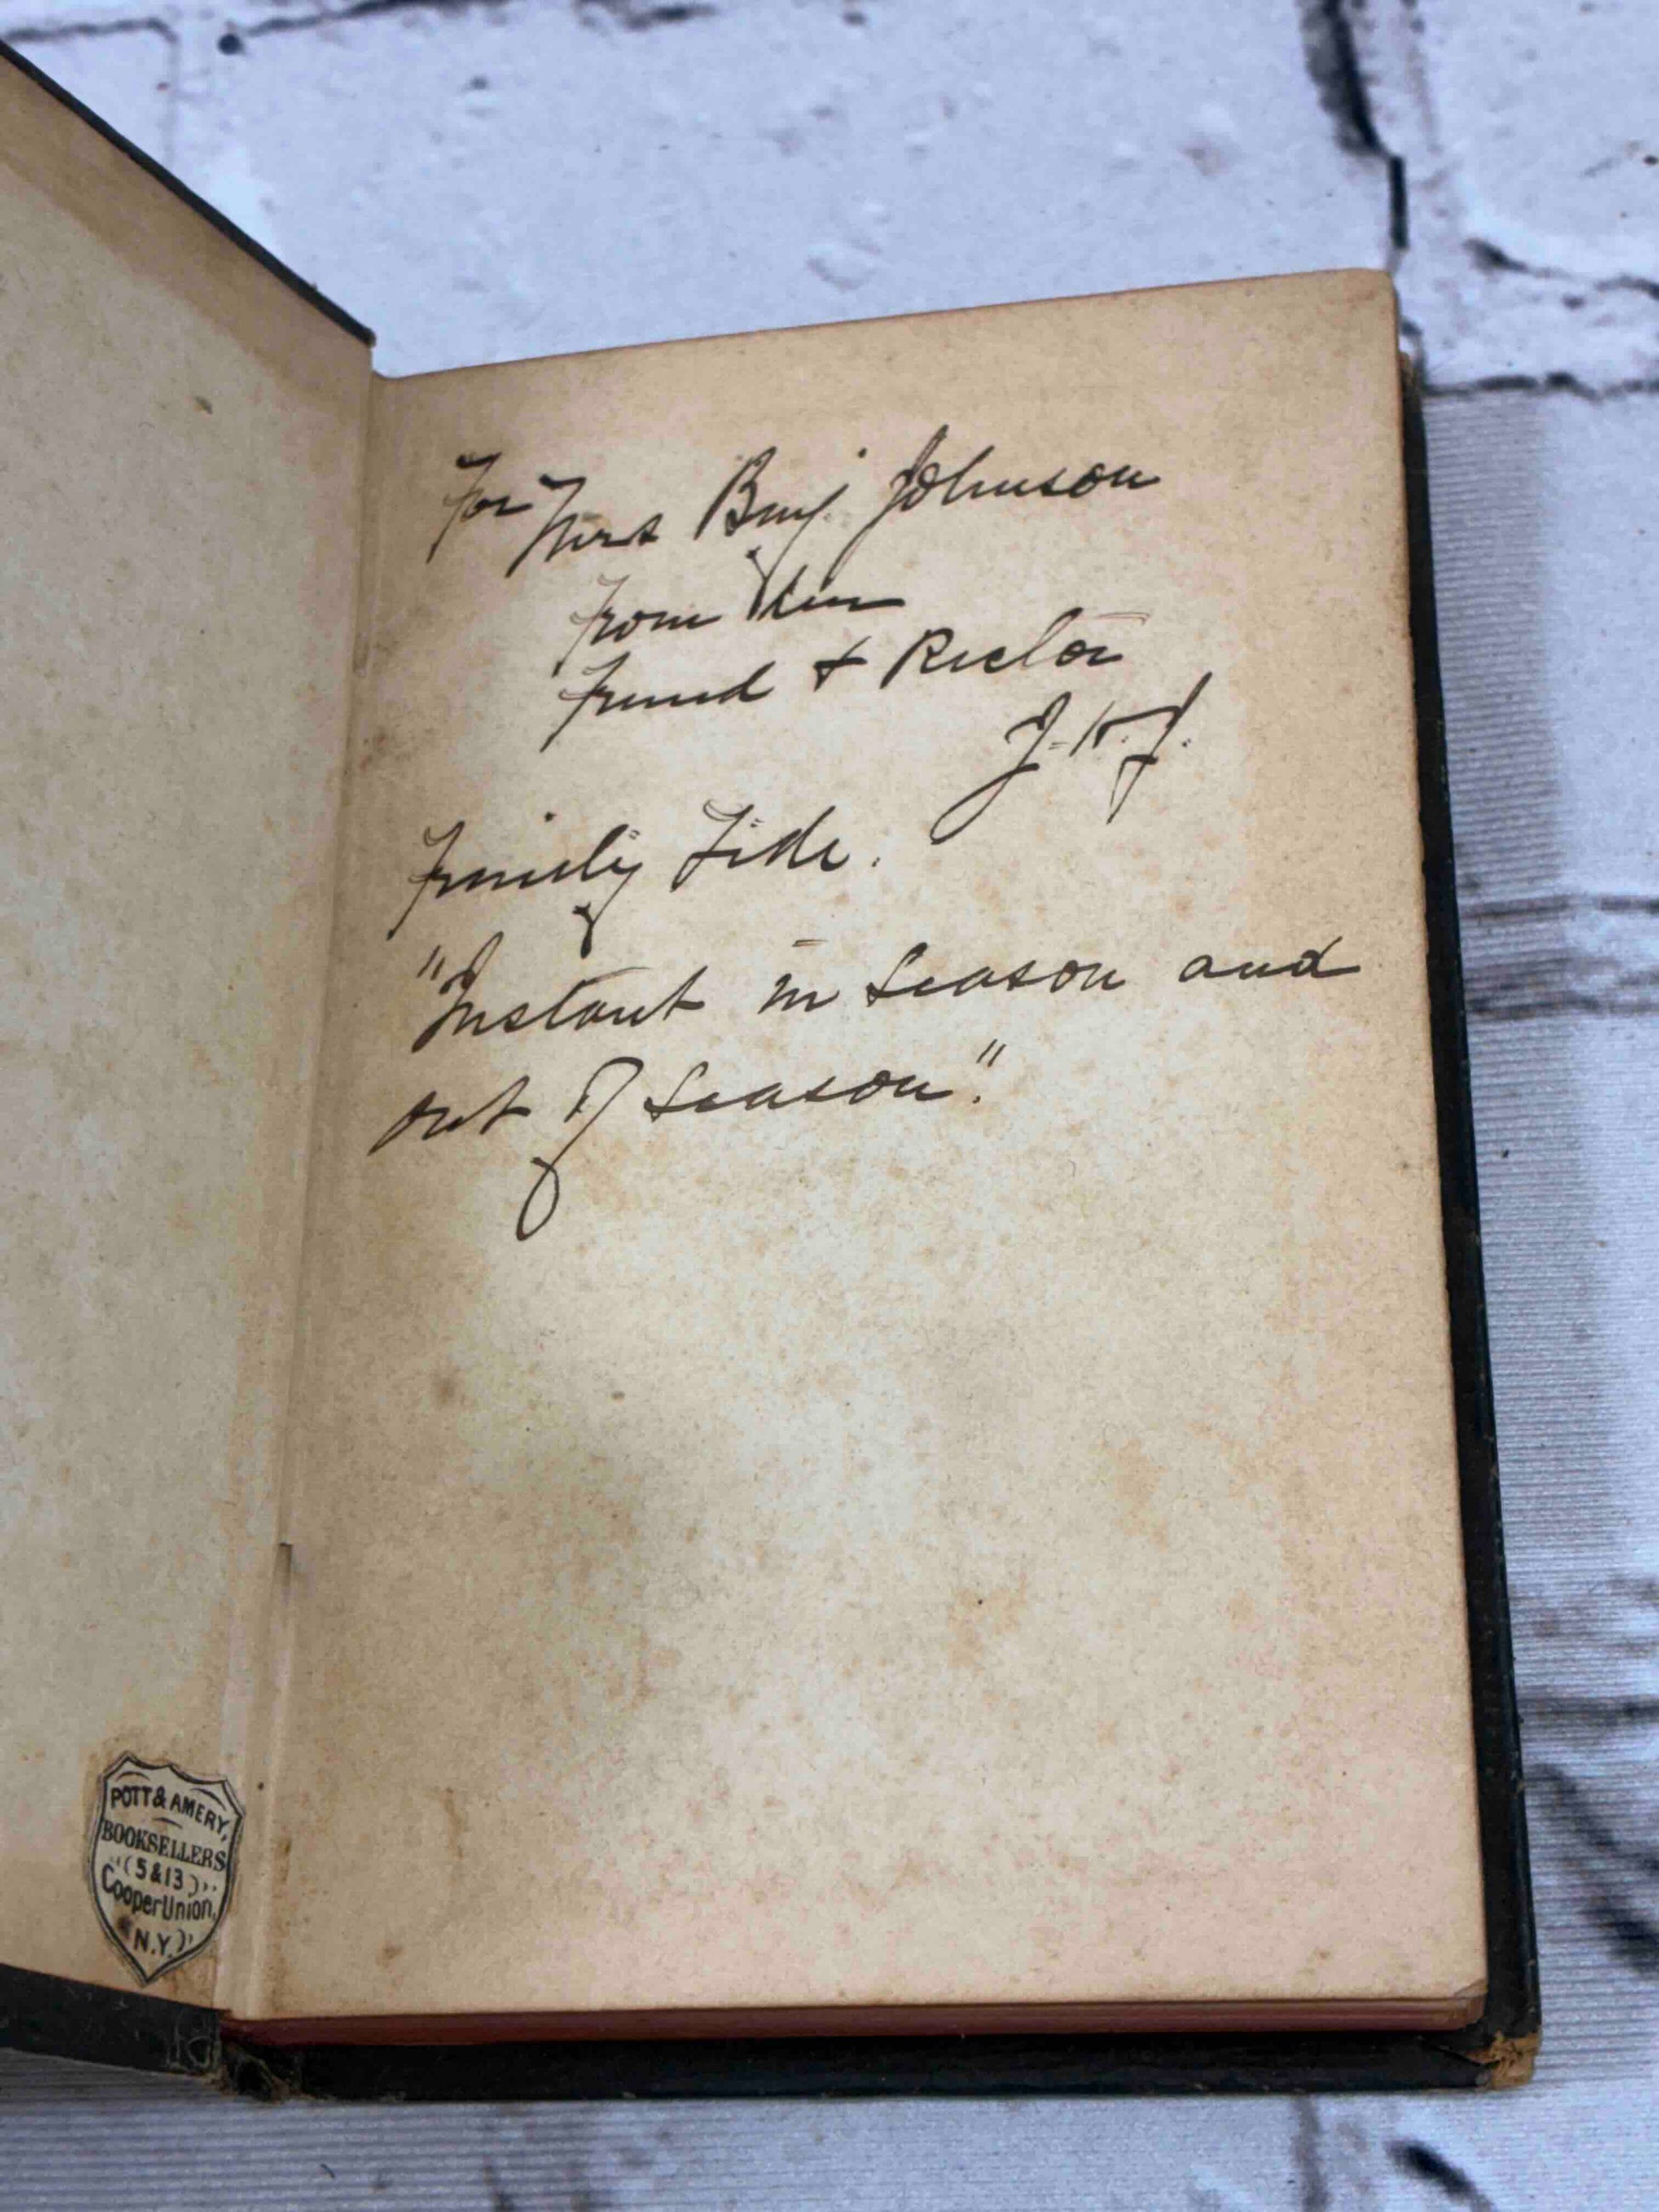 For Mrs Benj. Johnson
from her
friend & Rector
Trinity Tide.
"Instant in Season and
out of Season."
POTT & AMERY,
BOOKSELLERS
(5 & 13)
Cooper Union,
N.Y.